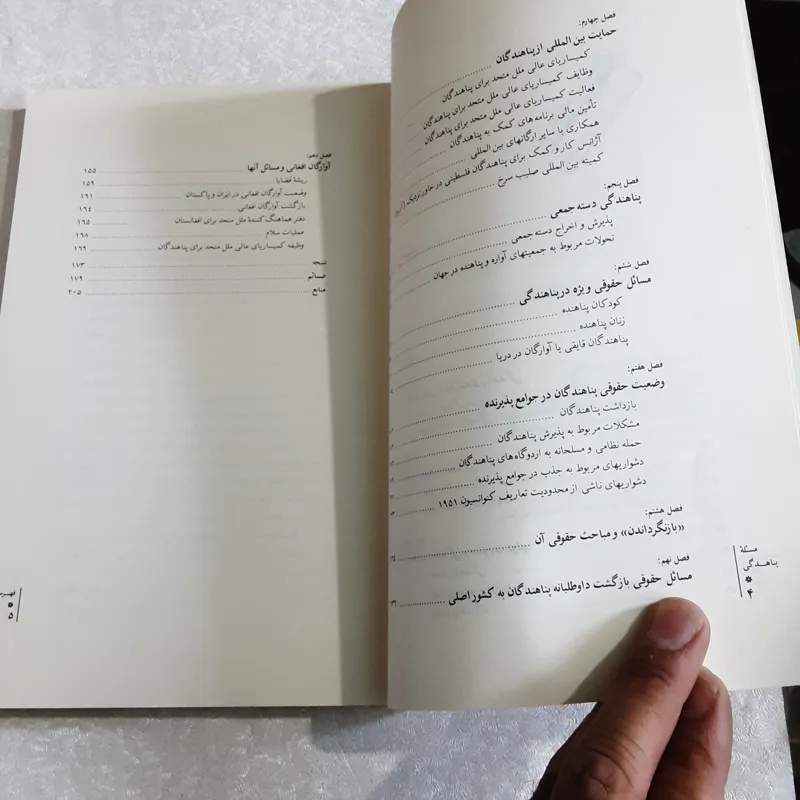 فصل چهارم:
حمایت بین المللی از پناهندگان
کمیساریای عالی ملل متحد برای پناهندگان
وظایف کمیساریای عالی ملل متحد برای پناهندگان
فعالیت کمیساریای عالی ملل متحد برای پناهندگان
تأمین مالی برنامه های کمک به پناهندگان
همکاری با سایر ارگانهای بین المللی
آژانس کار و کمک برای پناهندگان فلسطینی در خاور نزدیک
کمیته بین المللی صلیب سرخ
فصل پنجم:
پناهندگی دسته جمعی
پذیرش و اخراج دسته جمعی
تحولات مربوط به جمعیتهای آواره و پناهنده در جهان
فصل ششم:
مسائل حقوقی ویژه در پناهندگی
کودکان پناهنده
زنان پناهنده
پناهندگان قایقی یا آوارگان در دریا
فصل هفتم:
وضعیت حقوقی پناهندگان در جوامع پذیرنده
بازداشت پناهندگان
مشکلات مربوط به پذیرش پناهندگان
حمله نظامی و مسلحانه به اردوگاه های پناهندگان
دشواریهای مربوط به جذب در جوامع پذیرنده
دشواریهای ناشی از محدودیت تعاریف کنوانسیون ۱۹۵۱
فصل هشتم:
«بازنگرداندن» و مباحث حقوقی آن
فصل نهم:
مسائل حقوقی بازگشت داوطلبانه پناهندگان به کشور اصلی
مسئلهٔ
پناهندگی
۴
فصل دهم:
آوارگان افغانی و مسائل آنها ۱۵۵
ریشهٔ قضایا ۱۵۹
وضعیت آوارگان افغانی در ایران و پاکستان ۱۶۱
بازگشت آوارگان افغانی ۱۶۴
دفتر هماهنگ کنندهٔ ملل متحد برای افغانستان ۱۶۵
عملیات سلام ۱۶۸
وظیفه کمیساریای عالی ملل متحد برای پناهندگان ۱۶۹
نتیجه ۱۷۳
ضمائم ۱۷۹
منابع ۲۰۵
۵